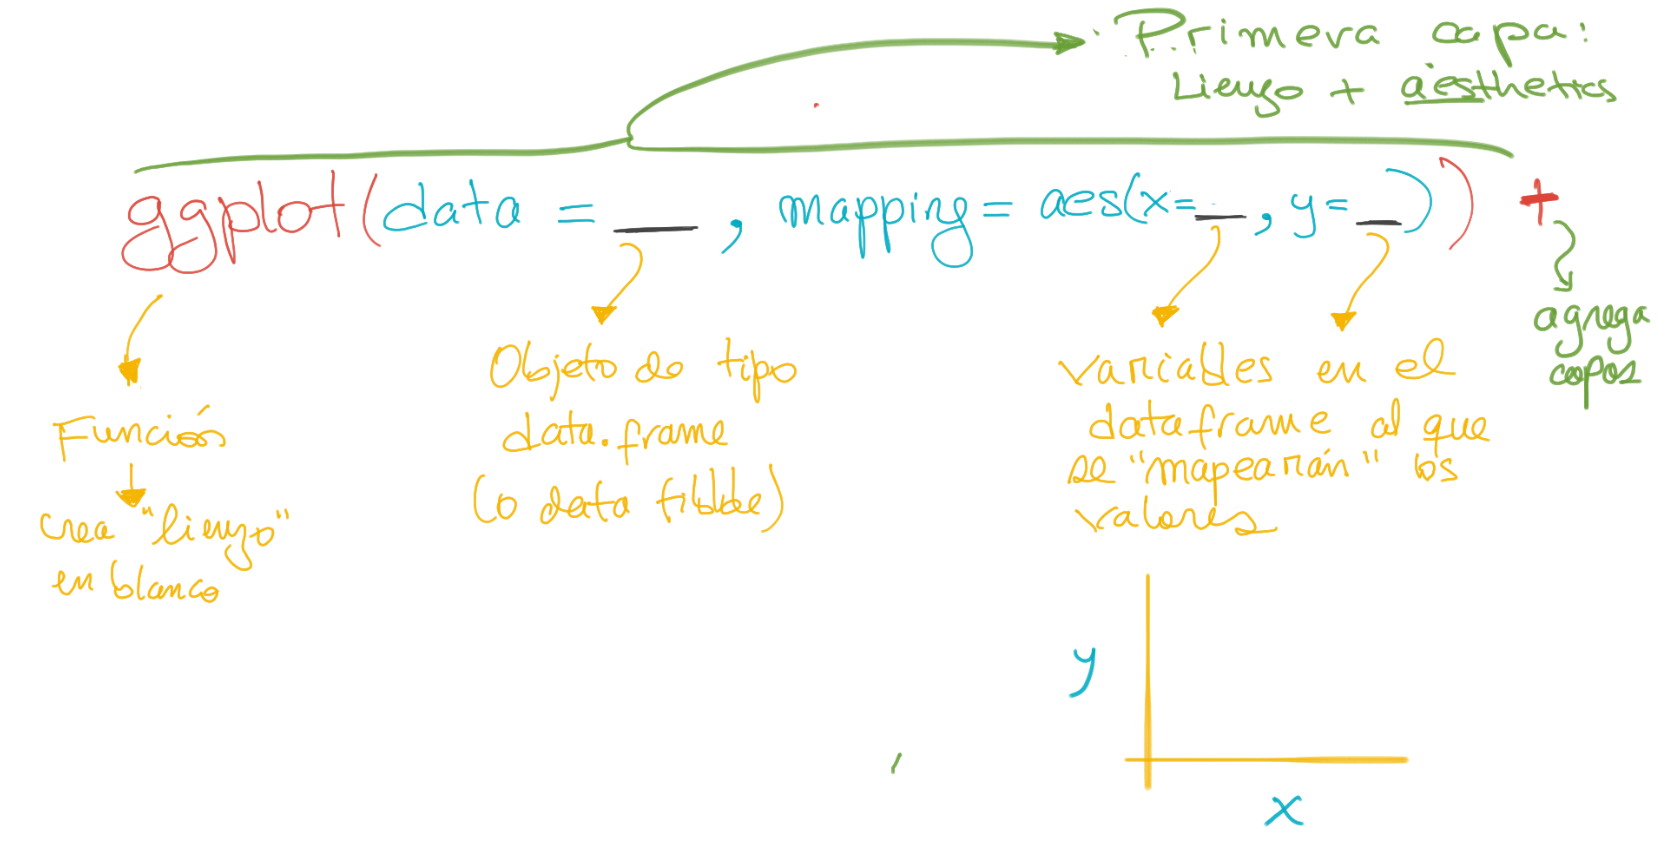 Primera capa:
Lienzo + aesthetics
ggplot(data = __, mapping = aes(x=__, y=__)) +
agrega
capas
Función
crea "lienzo"
en blanco
Objeto de tipo
data.frame
(o data tibble)
variables en el
dataframe al que
se "mapearán" los
valores
y
x